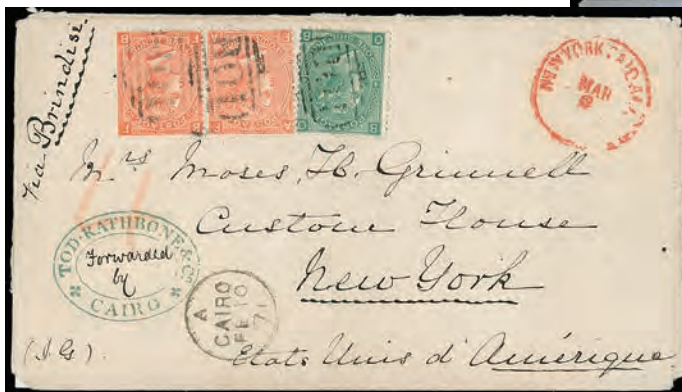 Via Brindisi
NEW YORK PAID ALL
MAR
Mrs Moses H. Grinnell
Custom House
New York
Etats Unis d'Amérique
TOD. RATHBONE & Co
Forwarded
by
CAIRO
A
CAIRO
FE 10
71
(I.G.)